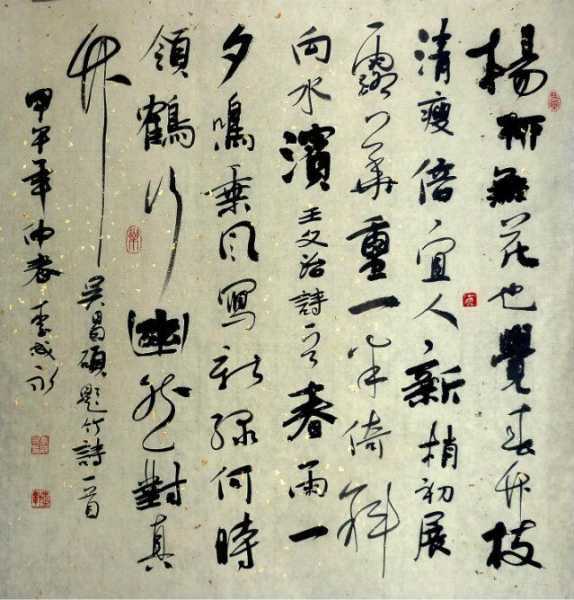 楊柳無花也覺春竹枝
清瘦倍宜人新梢初展
露華重一半倚斜
向水濱 王文治詩一首 春雨一
夕鳴乘風寫新綠何時
領鶴行幽然對真
竹 吳昌碩題竹詩一首
甲午年仲春李成永